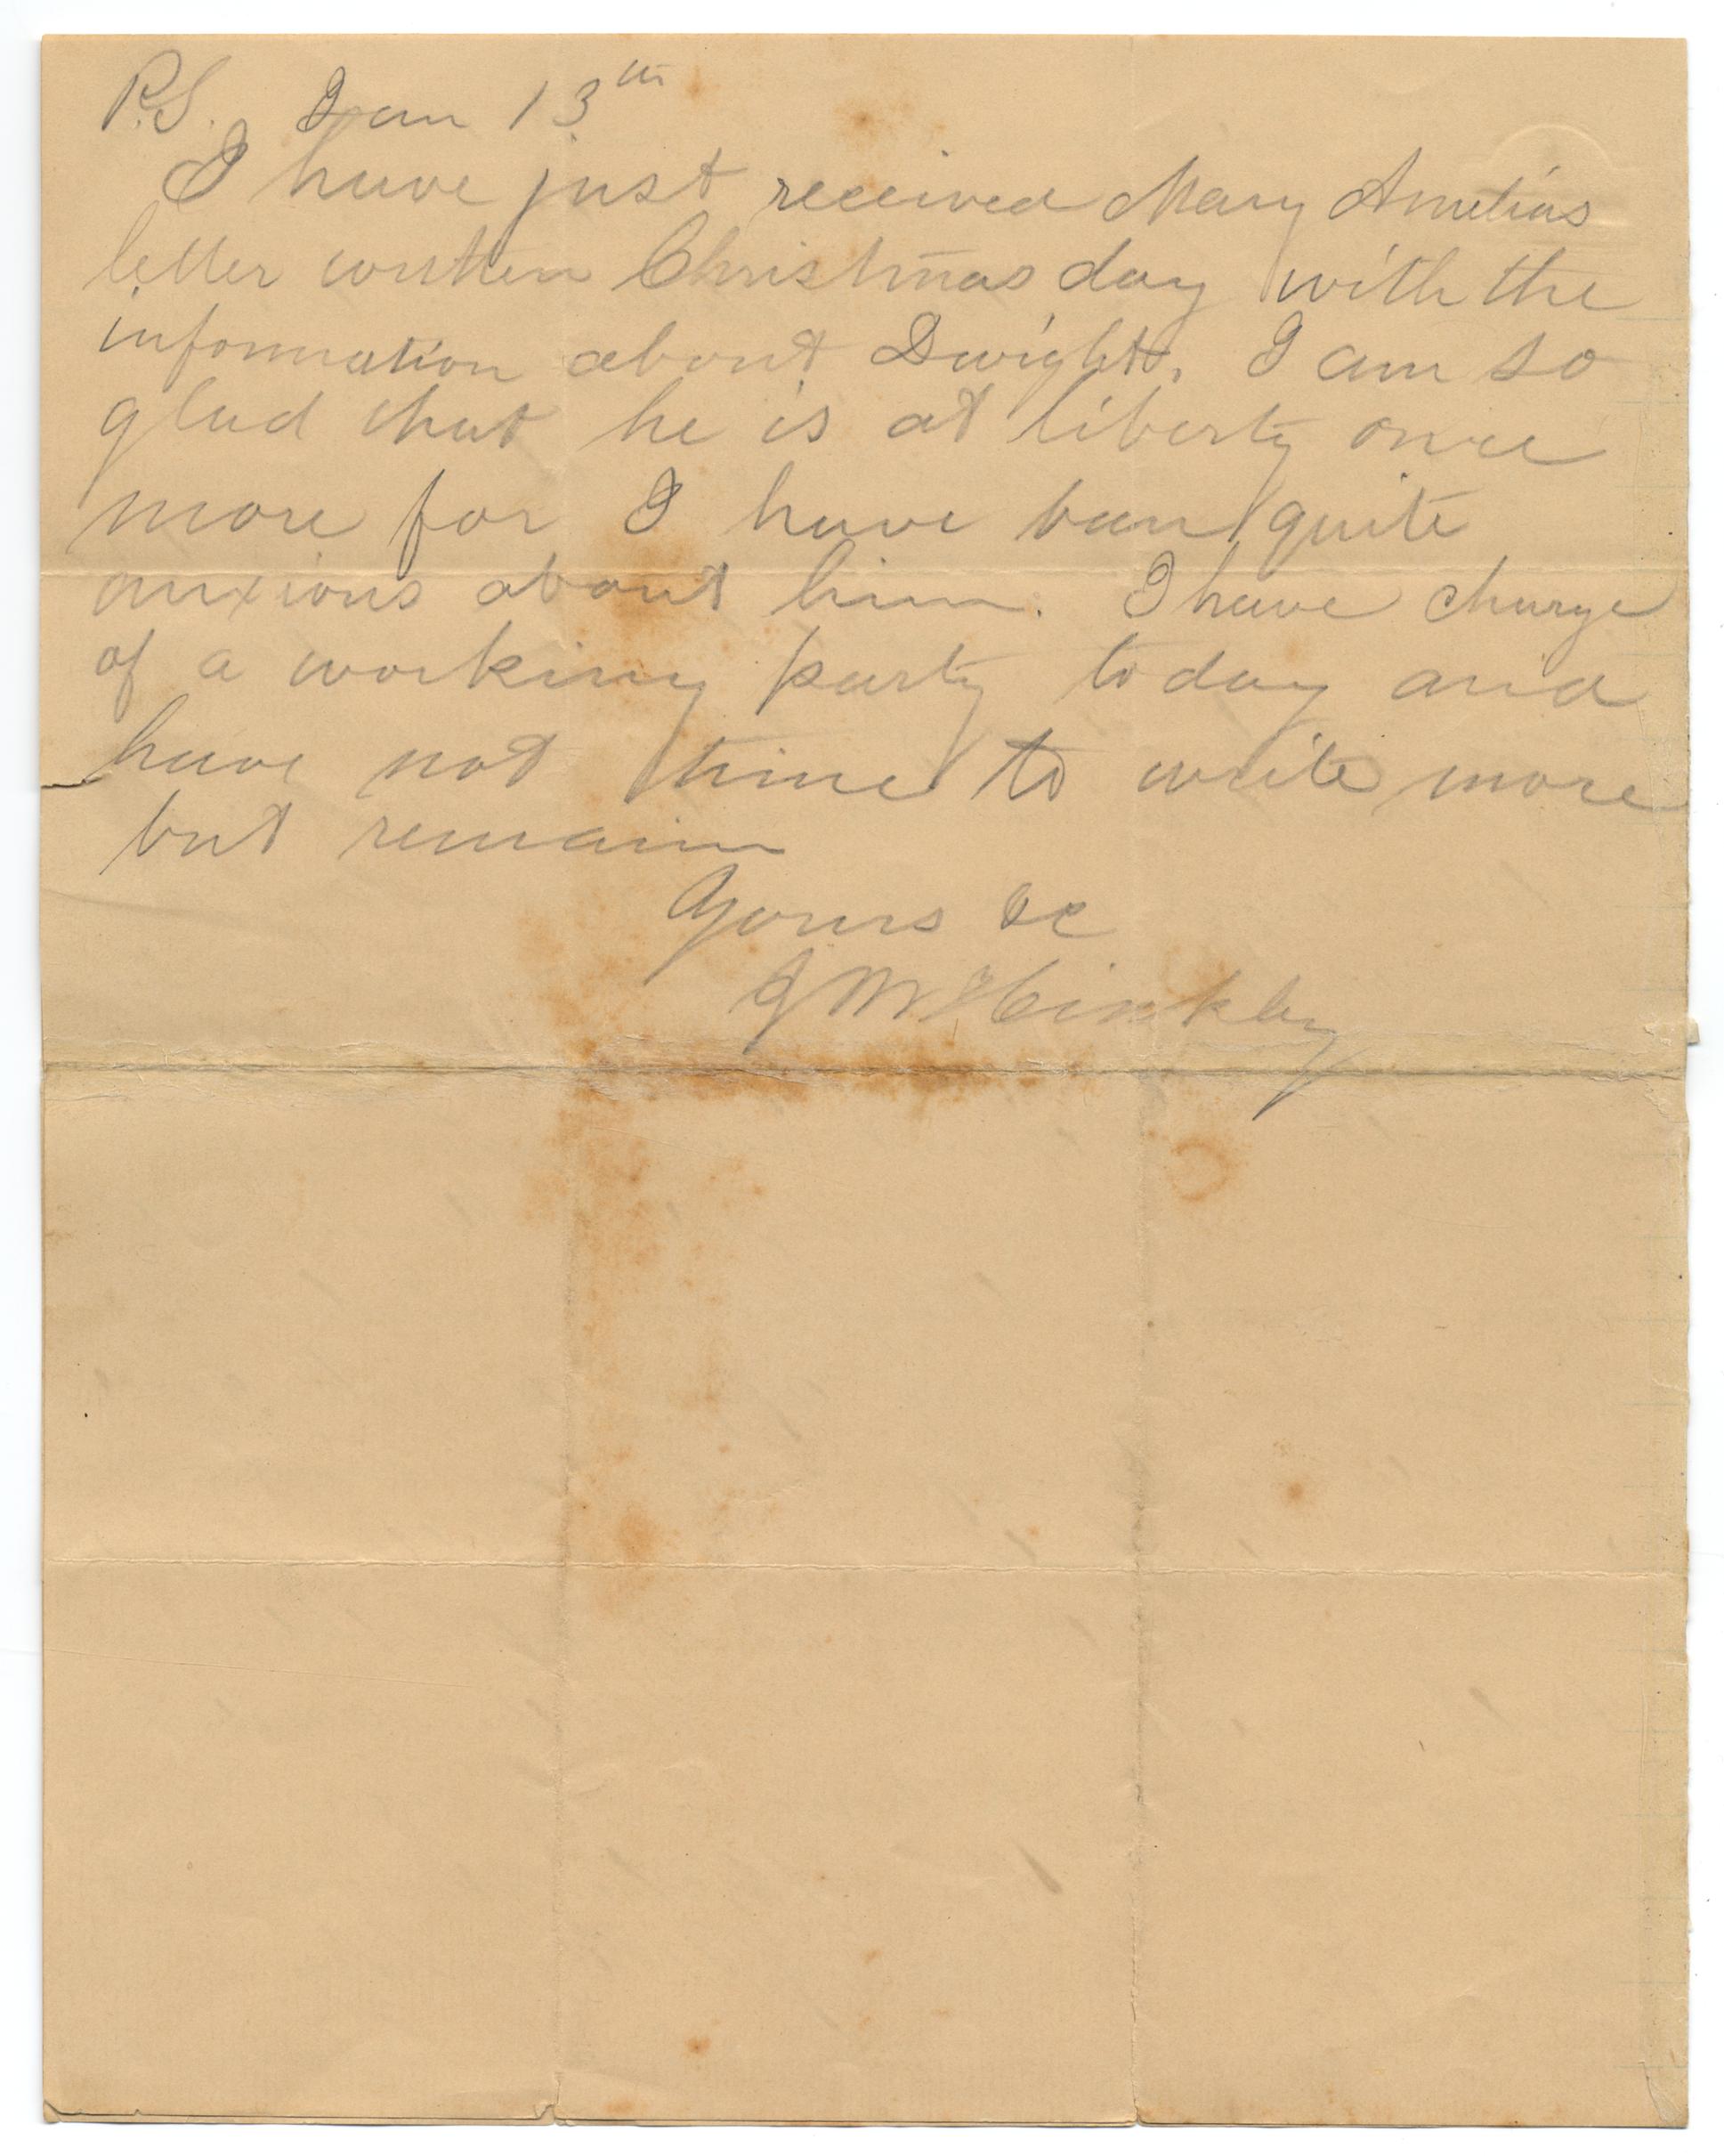 P.S. Jan 13th
I have just received Mary Amelias
letter written Christmas day with the
information about Dwight. I am so
glad that he is at liberty once
more for I have been quite
anxious about him. I have charge
of a working party to day and
have not time to write more
but remain
Yours &c
J M Hinkley